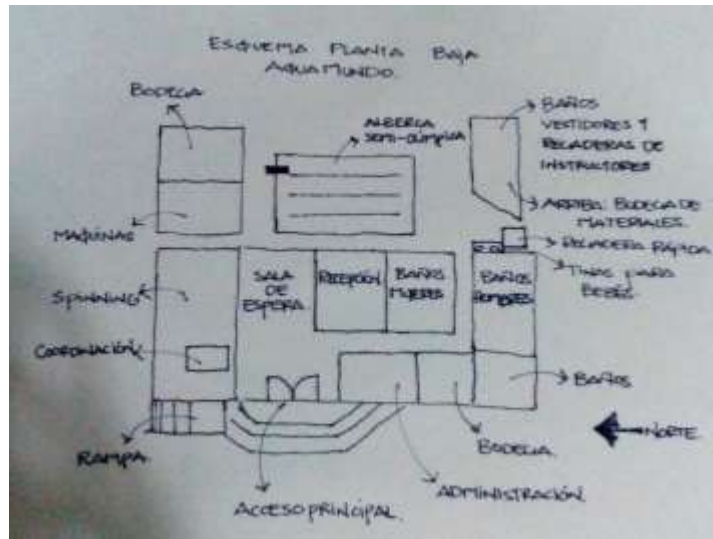 ESQUEMA PLANTA BAJA
AQUAMUNDO.
BODEGA
ALBERCA
SEMI-OLÍMPICA
BAÑOS
VESTIDORES Y
REGADERAS DE
INSTRUCTORES
ARRIBA: BODEGA DE
MATERIALES.
MAQUINAS
REGADERA RÁPIDA
TINAS PARA
BEBÉS.
SPINNING
SALA
DE
ESPERA.
RECEPCIÓN
BAÑOS
MUJERES
BAÑOS
HOMBRES
COORDINACIÓN
BAÑOS
NORTE.
RAMPA.
BODEGA
ADMINISTRACIÓN.
ACCESO PRINCIPAL.